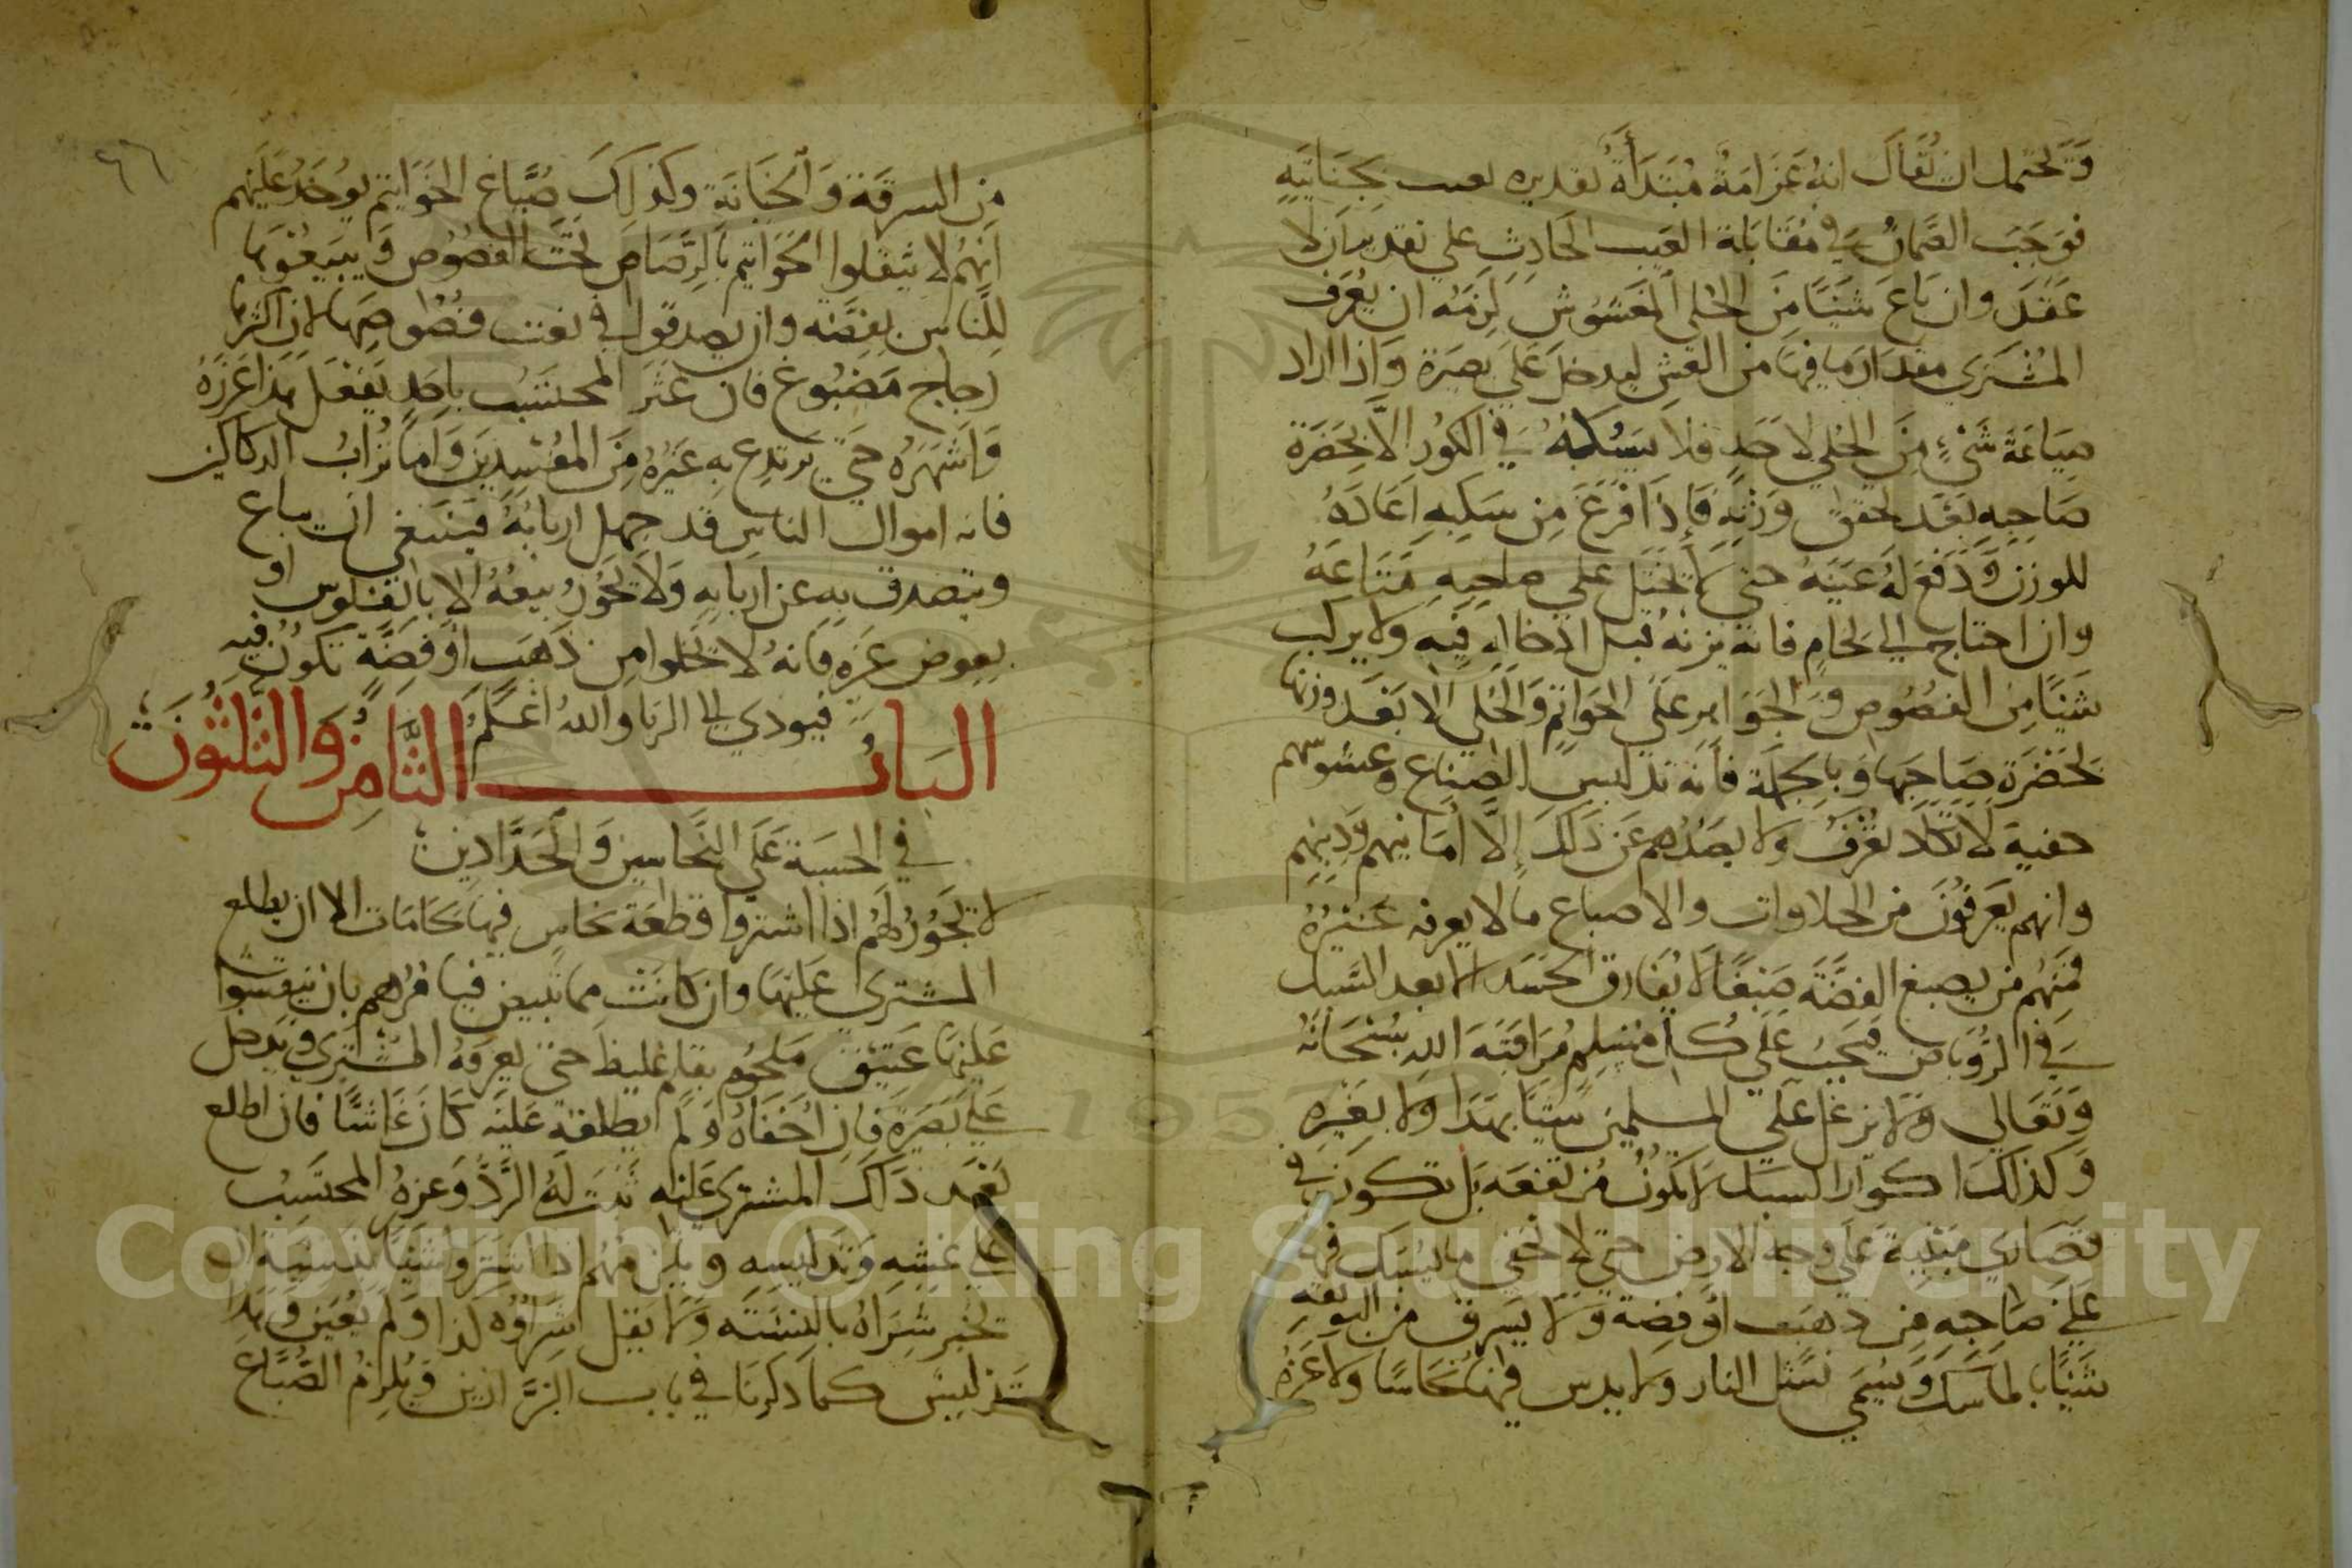 وتحتمل ان تقال انه غرامة مبتدأة تقديره تعيب بجنايته
فوجب الضمان في مقابلة العيب الحادث علي تقدير ان لا
عقد وان باع شيئا من الحلي المغشوش لزمه ان يعرف
المشتري مقدار ما فيها من الغش ليدخل علي بصيرة واذا اراد
صياغة شيء من الحلي لاحد فلا يسبكه في الكور الا بحضرة
صاحبه بعد تحقق وزنه فاذا افرغ من سكبه اعاده
للوزن ودفع له عينه حتي لا تختل علي صاحبه متاعه
وان احتاج الي لحام فانه يزنه قبل ادخاله فيه ولا يركب
شيئا من الفصوص والجواهر علي الخواتم والحلي الا بعد وزنها
بحضرة صاحبها وبالجملة فانه تدليس الصناع وغشوشهم
خفية لا تكاد تعرف ولا يصدهم عن ذلك إلا أمانيهم ودينهم
وانهم يعرفون من الجلاوات والاصباغ ما لا يعرفه غيره
فمنهم من يصبغ الفضة صبغا لا يفارق الجسد الا بعد السبك
في الروباص فيجب علي كل مسلم مراقبة الله سبحانه
وتعالي ولا يزغل علي المسلمين شيئا بهذا ولا بغيره
وكذلك اكوار السبك لا تكون مرتفعة بل تكون في
قصاري مبنية علي وجه الارض حتي لا تخفي ما يسبك فيها
علي صاحبه من ذهب او فضة ولا يسرق من البوتقة
شيئا بالماسك ويسمي نشل النار ولا يدس فيها نحاسا ولا غيره
٩٦
من السرقة والخيانة وكذلك صباغ الخواتيم يوخذ عليهم
انهم لا يثقلوا الخواتيم بالرصاص تحت الفصوص ويبيعونها
للناس بفضة وان يصدقوا في نعت فصوصها لان اكثرها
زجاج مصبوغ فان عثر المحتسب باحد يفعل هذا عزره
واشهره حتي يرتدع به غيره من المفسدين واما تراب الدكاكين
فانه اموال الناس قد جهل اربابه فينبغي ان يباع
ويتصدق به عن اربابه ولا يجوز بيعه الا بالفلوس او
بعوض غيره فانه لا تخلوا من ذهب او فضة تكون فيه
فيودي الى الربا والله اعلم
الباب الثامن والثلثون
في الحسبة علي النحاسين والحدادين
لا يجوز لهم اذا اشتروا قطعة نحاس فيها لحامات الا ان يطلع
المشتري عليها وان كانت مما تبيض فيامرهم بان ينقشوا
عليها عتيق ملحوم بقلم غليظ حتي يعرفه المشتري ويدخل
علي بصيرة فان اخفاه ولم يطلعه عليه كان غاشا فان اطلع
بعد ذلك المشتري عليه ثبت له الرد وعزره المحتسب
علي غشه وتدليسه ويلزمهم اذا اشتروا شيئا بنسية ان
تخبر شراه بالنسية ولا يقل شراؤه لذا ولم يعين وهذا
تدليس كما ذكرنا في باب البزازين ويلزم الصباغ
Copyright © King Saud University
1957